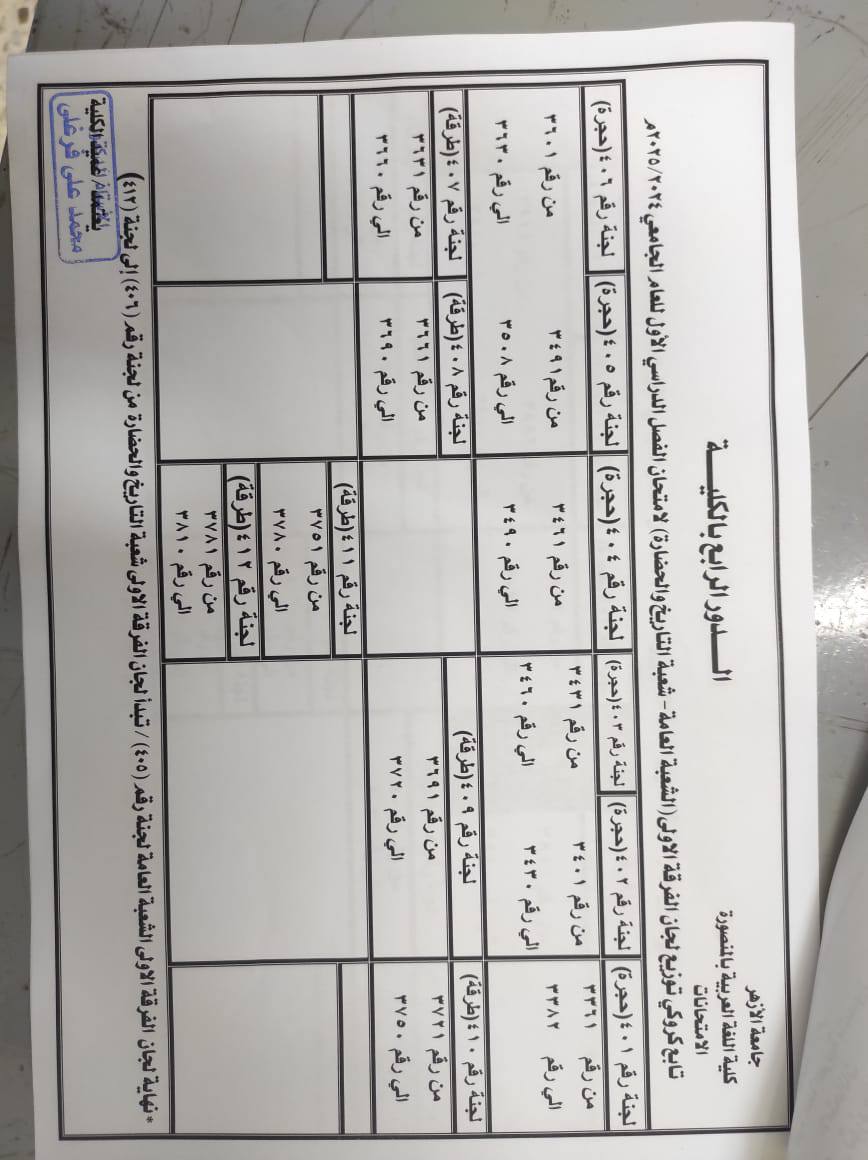 جامعة الأزهر
كلية اللغة العربية بالمنصورة
الامتحانات
الــدور الرابع بالكليـــة
تابع كروكي توزيع لجان الفرقة الاولى (الشعبة العامة - شعبة التاريخ والحضارة) لامتحان الفصل الدراسي الأول للعام الجامعي ٢٠٢٥/٢٠٢٤م
لجنة رقم ٤٠١ (حجرة)
من رقم ٣٣٦١
الي رقم ٣٣٨٢
لجنة رقم ٤٠٢ (حجرة)
من رقم ٣٤٠١
الي رقم ٣٤٣٠
لجنة رقم ٤٠٣ (حجرة)
من رقم ٣٤٣١
الي رقم ٣٤٦٠
لجنة رقم ٤٠٤ (حجرة)
من رقم ٣٤٦١
الي رقم ٣٤٩٠
لجنة رقم ٤٠٥ (حجرة)
من رقم ٣٤٩١
الي رقم ٣٥٠٨
لجنة رقم ٤٠٦ (حجرة)
من رقم ٣٦٠١
الي رقم ٣٦٣٠
لجنة رقم ٤١٠ (طرقة)
من رقم ٣٧٢١
الي رقم ٣٧٥٠
لجنة رقم ٤٠٩ (طرقة)
من رقم ٣٦٩١
الي رقم ٣٧٢٠
لجنة رقم ٤٠٨ (طرقة)
من رقم ٣٦٦١
الي رقم ٣٦٩٠
لجنة رقم ٤٠٧ (طرقة)
من رقم ٣٦٣١
الي رقم ٣٦٦٠
لجنة رقم ٤١١ (طرقة)
من رقم ٣٧٥١
الي رقم ٣٧٨٠
لجنة رقم ٤١٢ (طرقة)
من رقم ٣٧٨١
الي رقم ٣٨١٠
* نهاية لجان الفرقة الاولى الشعبة العامة لجنة رقم (٤٠٥) / تبدأ لجان الفرقة الاولى شعبة التاريخ والحضارة من لجنة رقم (٤٠٦) إلى لجنة (٤١٢)
الكلية
محمد على فرغلى